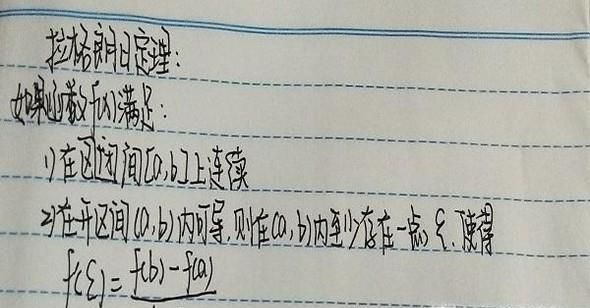 拉格朗日定理:
如果函数f(x)满足:
1)在区闭间[a,b]上连续
2)在开区间(a,b)内可导,则在(a,b)内至少存在一点ξ,使得
f'(ξ)=f(b)-f(a)